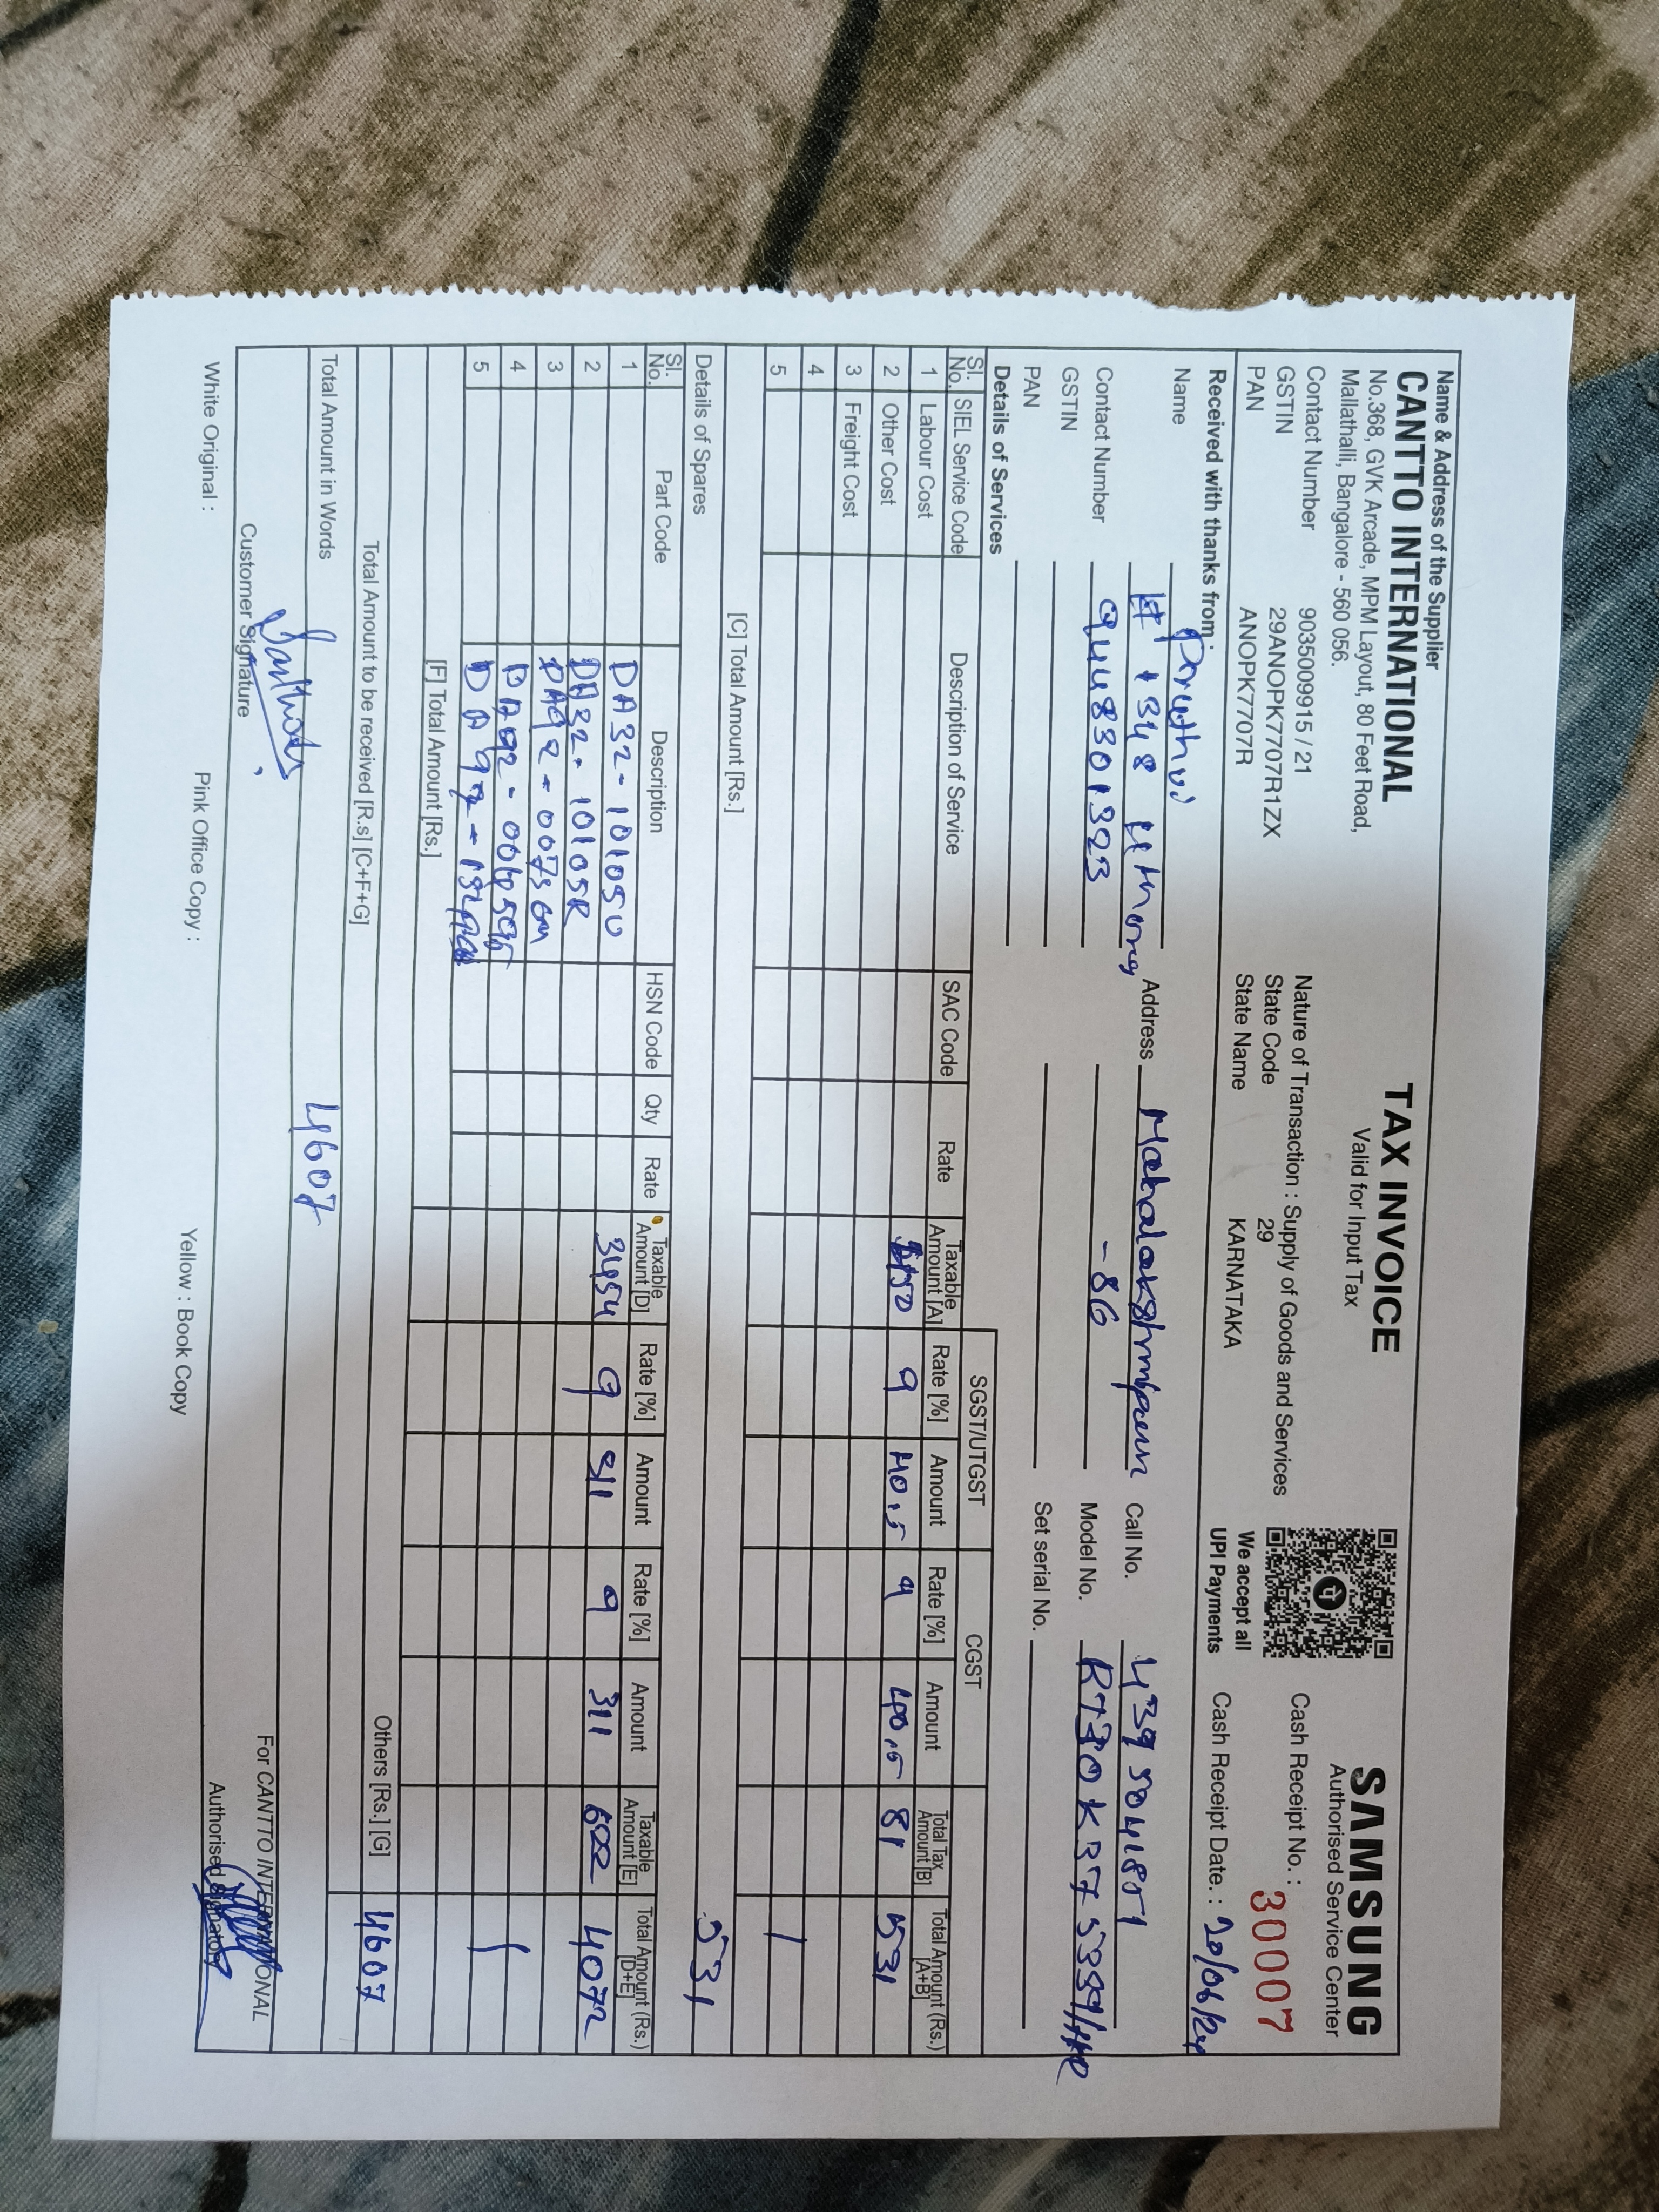 Name & Address of the Supplier
CANTTO INTERNATIONAL
No.368, GVK Arcade, MPM Layout, 80 Feet Road,
Mallathalli, Bangalore - 560 056.
Contact Number 9035009915 / 21
GSTIN 29ANOPK7707R1ZX
PAN ANOPK7707R
TAX INVOICE
Valid for Input Tax
Nature of Transaction : Supply of Goods and Services
State Code 29
State Name KARNATAKA
We accept all
UPI Payments
SAMSUNG
Authorised Service Center
Cash Receipt No. : 30007
Cash Receipt Date. : 20/06/24
Received with thanks from
Name Pruthvi
# 1348
Contact Number 9448301323
GSTIN
PAN
Address
-86
Call No.
Model No.
Set serial No.
Details of Services
SGST/UTGST CGST
Sl. No. SIEL Service Code Description of Service SAC Code Rate Taxable Amount [A] Rate [%] Amount Rate [%] Amount Total Tax Amount [B] Total Amount (Rs.) [A+B]
1 Labour Cost
2 Other Cost 450 9 40.5 9 40.5 81 531
3 Freight Cost
4
5
[C] Total Amount [Rs.] 531
Details of Spares
Sl. No. Part Code Description HSN Code Qty Rate Taxable Amount [D] Rate [%] Amount Rate [%] Amount Taxable Amount [E] Total Amount (Rs.) [D+E]
1 DA32-10105U
2 DA32-10105R 3454 9 311 9 311 622 4072
3
4
5
[F] Total Amount [Rs.]
Others [Rs.] [G]
Total Amount to be received [R.s] [C+F+G] 4607
Total Amount in Words 4607
Customer Signature
For CANTTO INTERNATIONAL
Authorised Signatory
White Original : Pink Office Copy : Yellow : Book Copy